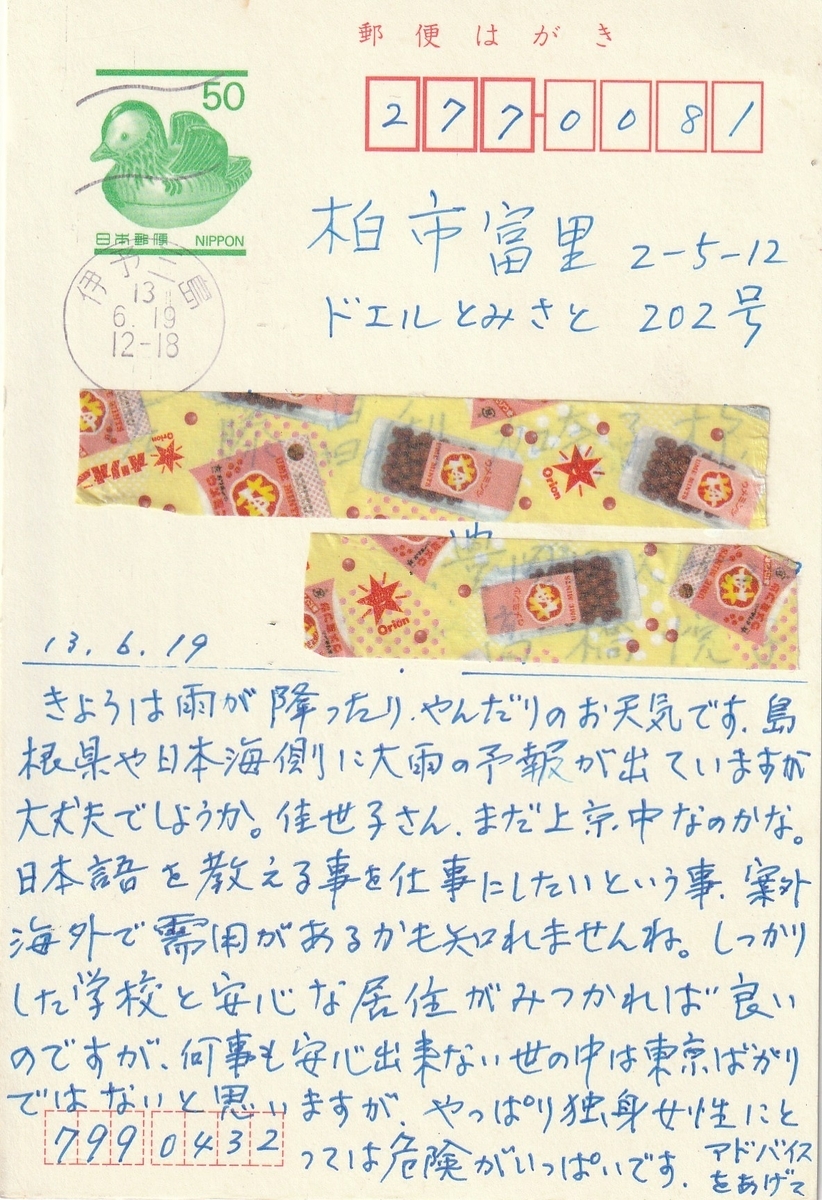 郵便はがき
50
日本郵便 NIPPON
277-0081
伊予三島
13
6.19
12-18
柏市富里 2-5-12
ドエルとみさと 202号
Orion
UME MINTS
Orion
UME MINTS
13.6.19
きょうは雨が降ったり、やんだりのお天気です、島
根県や日本海側に大雨の予報が出ていますが
大丈夫でしょうか。佳世子さん、まだ上京中なのかな。
日本語を教える事を仕事にしたいという事、案外
海外で需用があるかも知れませんね。しっかり
した学校と安心な居住がみつかれば良い
のですが、何事も安心出来ない世の中は東京ばかり
ではないと思いますが、やっぱり独身女性にと
っては危険がいっぱいです、アドバイス
をあげて
799 0432